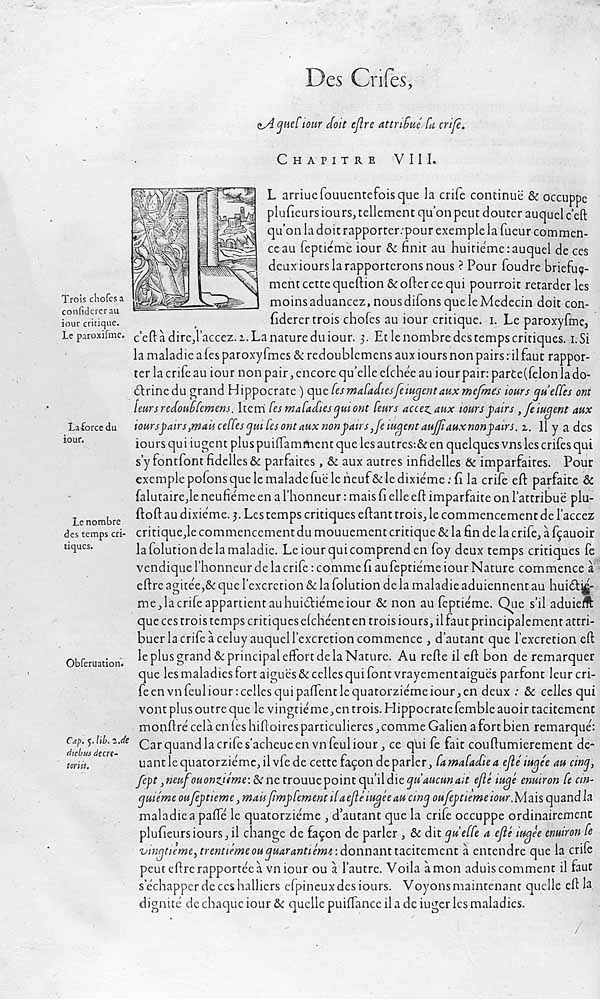 Des Crises,
A quel iour doit estre attribué la crise.
CHAPITRE VIII.
IL arriue souuentefois que la crise continuë & occuppe
plusieurs iours, tellement qu'on peut douter auquel c'est
qu'on la doit rapporter: pour exemple la sueur commen-
ce au septiéme iour & finit au huitiéme: auquel de ces
deux iours la rapporterons nous ? Pour soudre briefue-
ment cette question & oster ce qui pourroit retarder les
moins aduancez, nous disons que le Medecin doit con-
siderer trois choses au iour critique. 1. Le paroxysme,
c'est à dire, l'accez. 2. La nature du iour. 3. Et le nombre des temps critiques. 1. Si
la maladie a ses paroxysmes & redoublemens aux iours non pairs: il faut rappor-
ter la crise au iour non pair, encore qu'elle eschée au iour pair: parce (selon la do-
ctrine du grand Hippocrate) que les maladies se iugent aux mesmes iours qu'elles ont
leurs redoublemens. Item les maladies qui ont leurs accez aux iours pairs, se iugent aux
iours pairs, mais celles qui les ont aux non pairs, se iugent aussi aux non pairs. 2. Il y a des
iours qui iugent plus puissamment que les autres: & en quelques vns les crises qui
s'y font sont fidelles & parfaites, & aux autres infidelles & imparfaites. Pour
exemple posons que le malade suë le neuf & le dixiéme: si la crise est parfaite &
salutaire, le neufiéme en a l'honneur: mais si elle est imparfaite on l'attribuë plu-
stost au dixiéme. 3. Les temps critiques estant trois, le commencement de l'accez
critique, le commencement du mouuement critique & la fin de la crise, à sçauoir
la solution de la maladie. Le iour qui comprend en soy deux temps critiques se
vendique l'honneur de la crise: comme si au septiéme iour Nature commence à
estre agitée, & que l'excretion & la solution de la maladie aduiennent au huictié-
me, la crise appartient au huictiéme iour & non au septiéme. Que s'il aduient
que ces trois temps critiques eschéent en trois iours, il faut principalement attri-
buer la crise à celuy auquel l'excretion commence, d'autant que l'excretion est
le plus grand & principal effort de la Nature. Au reste il est bon de remarquer
que les maladies fort aiguës & celles qui sont vrayement aiguës parfont leur cri-
se en vn seul iour: celles qui passent le quatorziéme iour, en deux : & celles qui
vont plus outre que le vingtiéme, en trois. Hippocrate semble auoir tacitement
monstré celà en ses histoires particulieres, comme Galien a fort bien remarqué:
Car quand la crise s'acheue en vn seul iour, ce qui se fait coustumierement de-
uant le quatorziéme, il vse de cette façon de parler, la maladie a esté iugée au cinq,
sept, neuf ou onziéme: & ne trouue point qu'il die qu'aucun ait esté iugé enuiron le cin-
quiéme ou septieme, mais simplement il a esté iugée au cinq ou septieme iour. Mais quand la
maladie a passé le quatorziéme, d'autant que la crise occupe ordinairement
plusieurs iours, il change de façon de parler, & dit qu'elle a esté iugée enuiron le
vingtiéme, trentiéme ou quarantiéme: donnant tacitement à entendre que la crise
peut estre rapportée à vn iour ou à l'autre. Voila à mon aduis comment il faut
s'échapper de ces halliers espineux des iours. Voyons maintenant quelle est la
dignité de chaque iour & quelle puissance il a de iuger les maladies.
Trois choses a
considerer au
iour critique.
Le paroxisme.
La force du
iour.
Le nombre
des temps cri-
tiques.
Obseruation.
Cap. 5. lib. 2. de
diebus decre-
toriis.